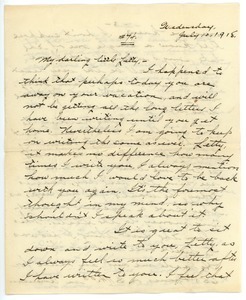 Wednesday,
July 10, 1918.
My darling little Letty:-
I happened to
think that perhaps today you are
away on your vacation, and will
not be getting all the long letters I
have been writing until you get
home. Nevertheless I am going to keep
on writing the same as ever. Letty,
it makes no difference how many
times I write you, I always mention
how much I would love to be back
with you again. It's the foremost
thought in my mind, so why
shouldn't I speak about it
It is great to sit
down and write to you, Letty, as
I always feel so much better after
I have written to you. I feel that